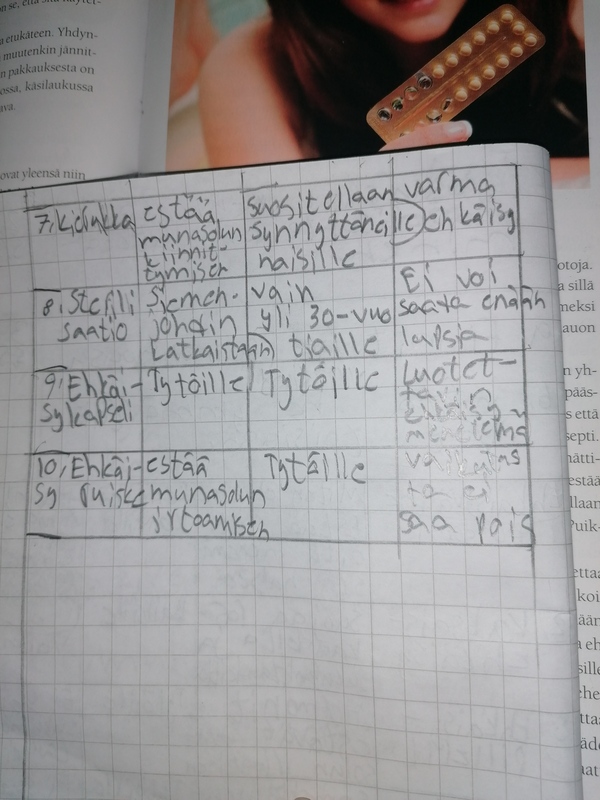 a etukäteen. Yhdyn-
muutenkin jännit-
n pakkauksesta on
ossa, käsilaukussa
ava.
ovat yleensä niin
7. kierukka
estää
munasolun
kiinnit-
tymisen
suositellaan
synnyttäneille
naisille
varma
ehkäisy
8. Sterili
saatio
Siemen-
johdin
katkaistaan
vain
yli 30-vuo
tiaille
Ei voi
saada enään
lapsia
9. Ehkäi-
sykapseli
Tytöille
Tytöille
Luotet-
10. Ehkäi-
sy ruiske
estää
munasolun
irtoamisen
Tytöille
saa pois
otoja.
a sillä
neksi
auon
n yh-
pääs-
s että
septi.
nätti-
estää
llaan
Puik-
ettaa
koi
ään
a eh
sille
ehe
ttaa
äde
aat